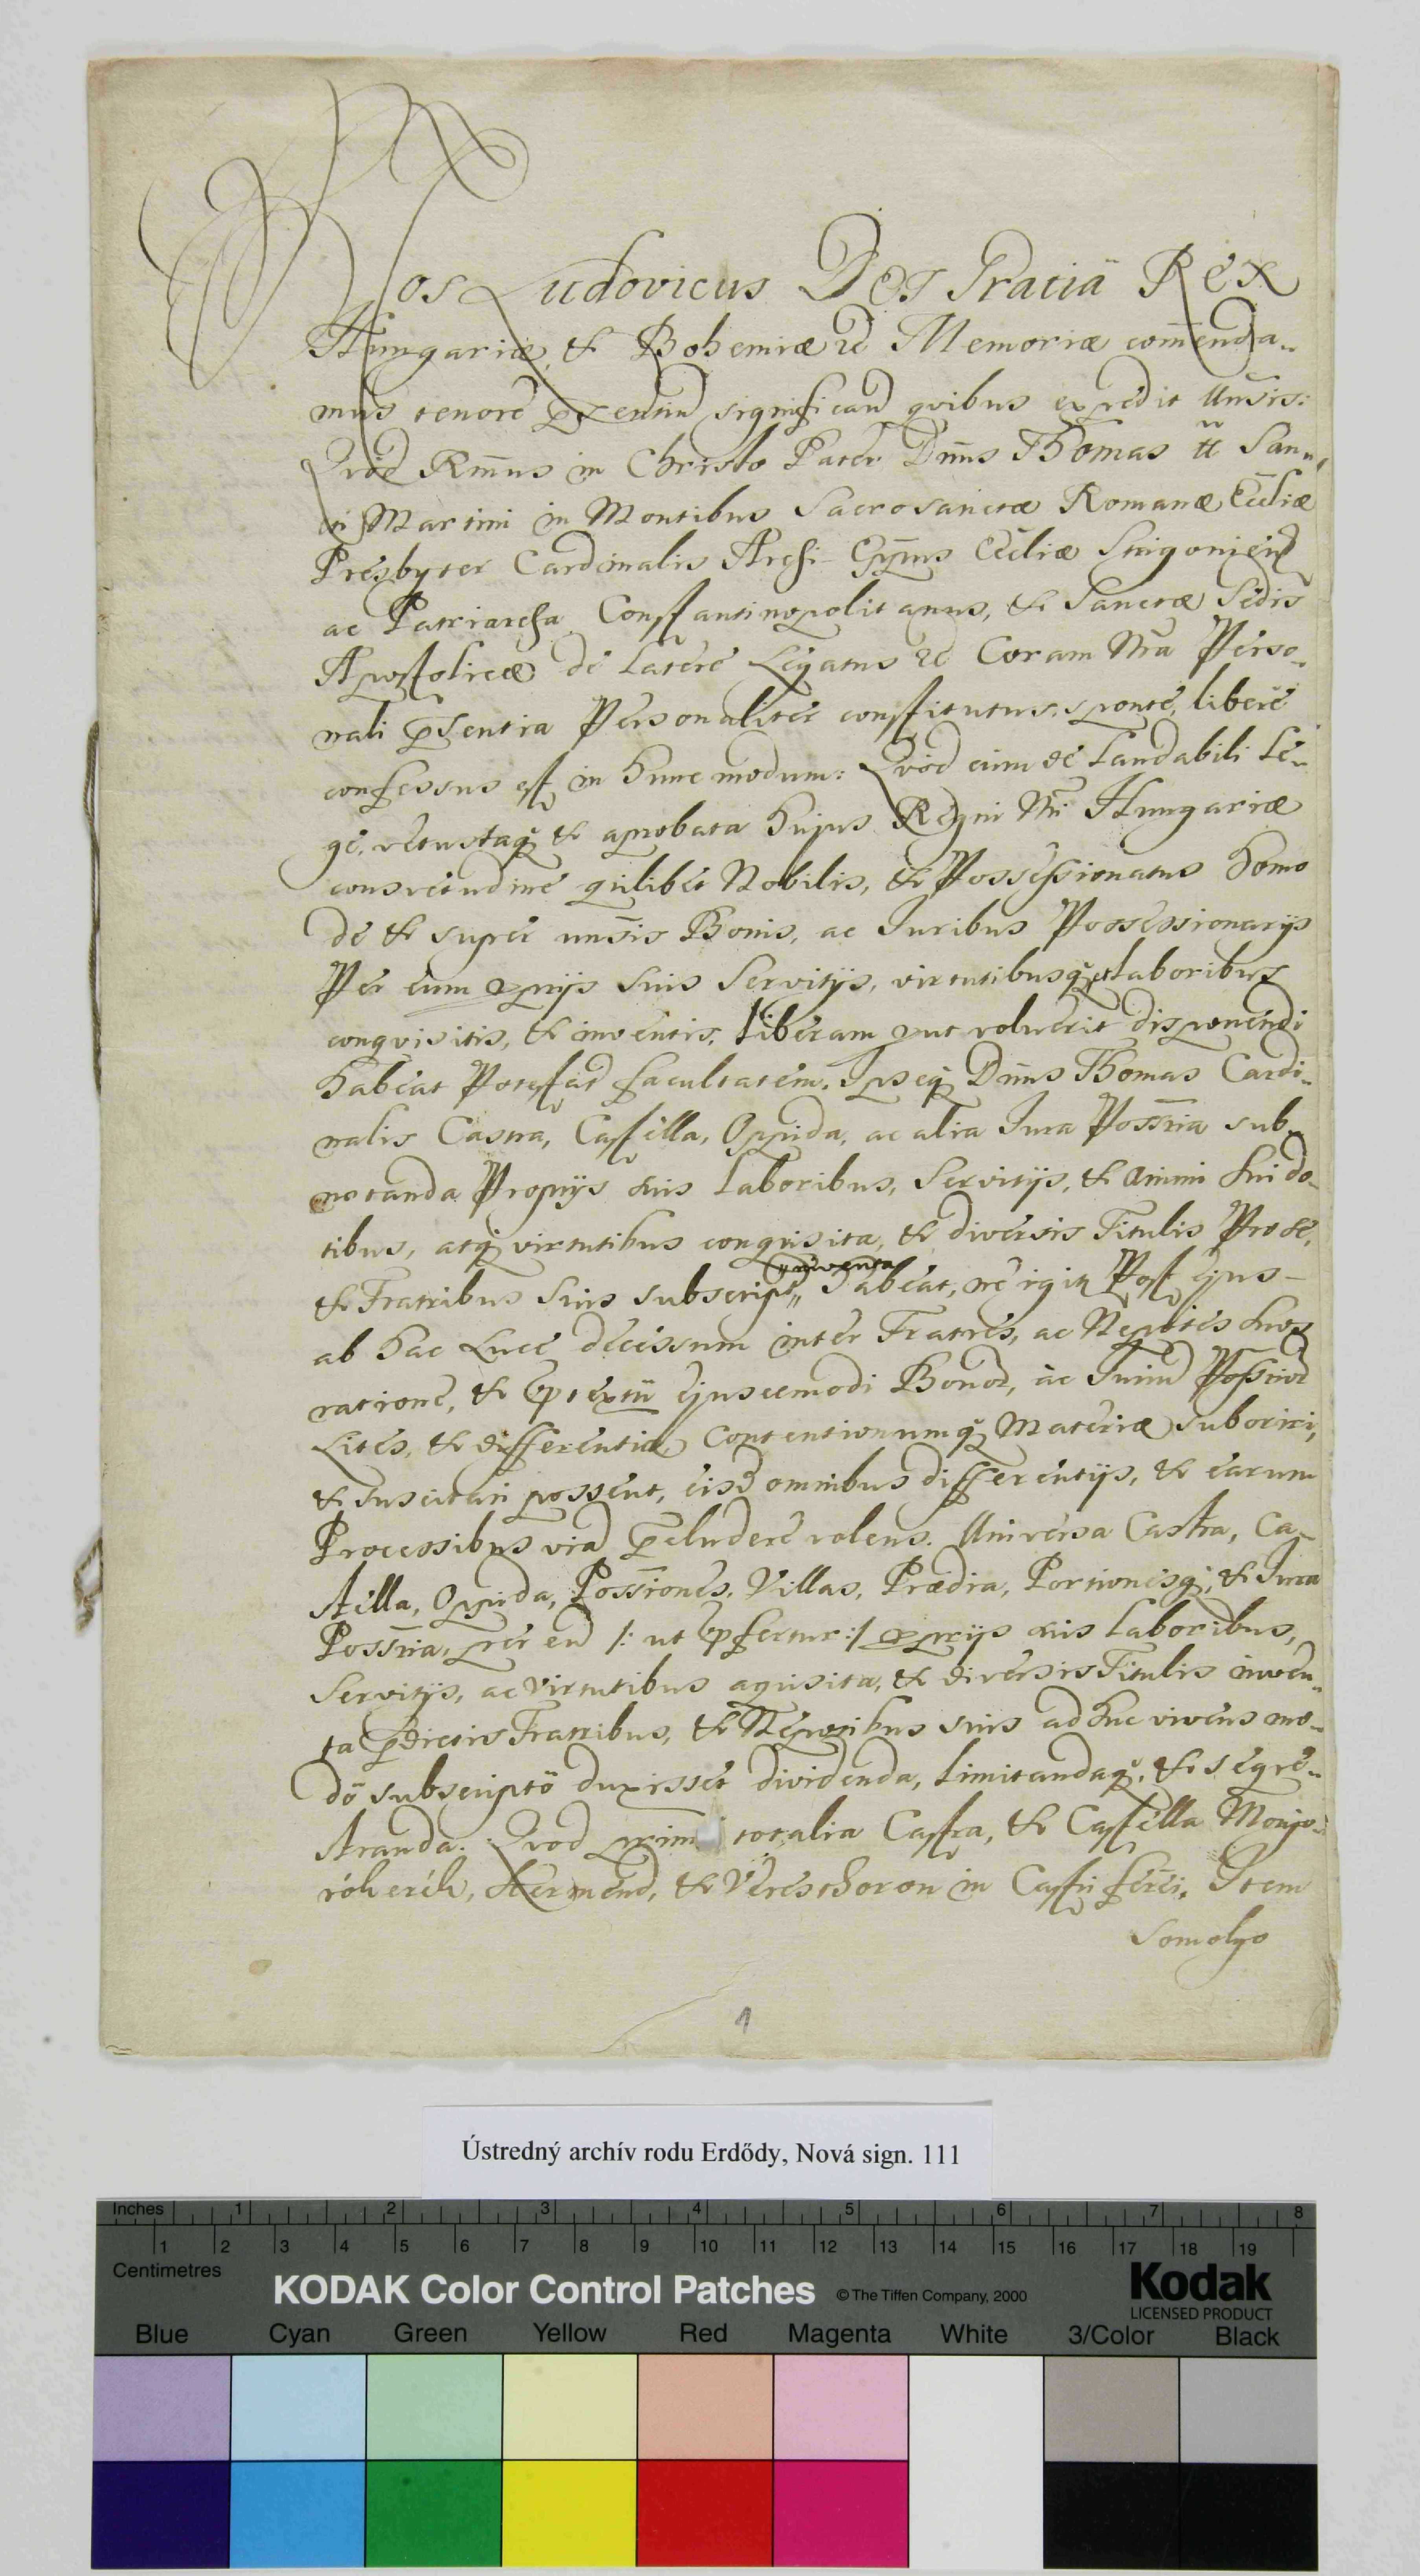 Nos Ludovicus Dei Gratiä Rex
Hungariæ, & Bohemiæ &c Memoriæ com̄enda„
mus tenore significand qvibus expedit Un̄sis:
Qvod Rm̄us in Christo Pater Dn̄us Thomas tt̃ Sanc„
ti Martini in Montibus Sacrosanctæ Romanæ Ecc̄liæ
Presbyter Cardinalis Archi-Ep̄pus Ecc̄liæ Strigonien̄
ac Patriarcha Constantinopolitanus, & Sanctæ Sedis
Apostolicæ de Latere Legatus &c Coram Nr̄a Perso„
nali p̄sentia Personaliter constitutus, sponte, libere
confessus est in hunc modum: Qvod cum de Laudabili Le„
ge, vetustaq, & aprobata hujus Regni Nr̄i Hungariæ
consvetudine qvilibet Nobilis, & Possessionatus homo
de & super un̄sis Bonis, ac Juribus Possessionarijs
Per eum prijs suis Servitijs, virtutibusq, et laboribus
conqvisitis, & inventis, Liberam put voluerit disponendi
habeat Potestād facultatem. Ipseq Dn̄us Thomas Cardi„
nalis Castra, Castella, Oppida, ac alia Jura Poss̄ria sub„
notanda Proprijs suis Laboribus, Servitijs, & animi sui do„
tibus, atq virtutibus conqvisita, & diversis Titulis Pro se,
inventa
& Fratribus suis subscript„ habeat, ne igitr Post ejus-
ab hac Luce decessum inter Fratres, ac Nepotes suos
ratione, & p̄textu ejuscemodi Bonor, ac Jurium Poss̄rior
Lites, & differentiæ Contentionumq, Materiæ suboriri,
& suscitari possent, eisd omnibus differentijs, & earum
Processibus viad p̄cludere volens. Universa Castra, Ca„
stella, Oppida, Poss̄iones, Villas, Prædia, Portionesq, & Jura
Poss̄ria, per eud /: ut p̄fertur :/ prijs suis Laboribus,
Servitijs, ac Virtutibus aqvisita, & diversis Titulis inven„
ta p̄dictis Fratribus, & Nepotibus suis adhuc vivens mo„
dö subscriptö duxisset dividenda, Limitandaq, & segre„
stranda. Qvod prim totalia Castra, & Castella Monjo„
rókerék, Kermend, & Veresthoron in Castri ferrei. Item
Somolyo
1
Ústredný archív rodu Erdődy, Nová sign. 111
Inches 1 2 3 4 5 6 7 8
1 2 3 4 5 6 7 8 9 10 11 12 13 14 15 16 17 18 19
Centimetres
KODAK Color Control Patches © The Tiffen Company, 2000 Kodak
LICENSED PRODUCT
Blue Cyan Green Yellow Red Magenta White 3/Color Black